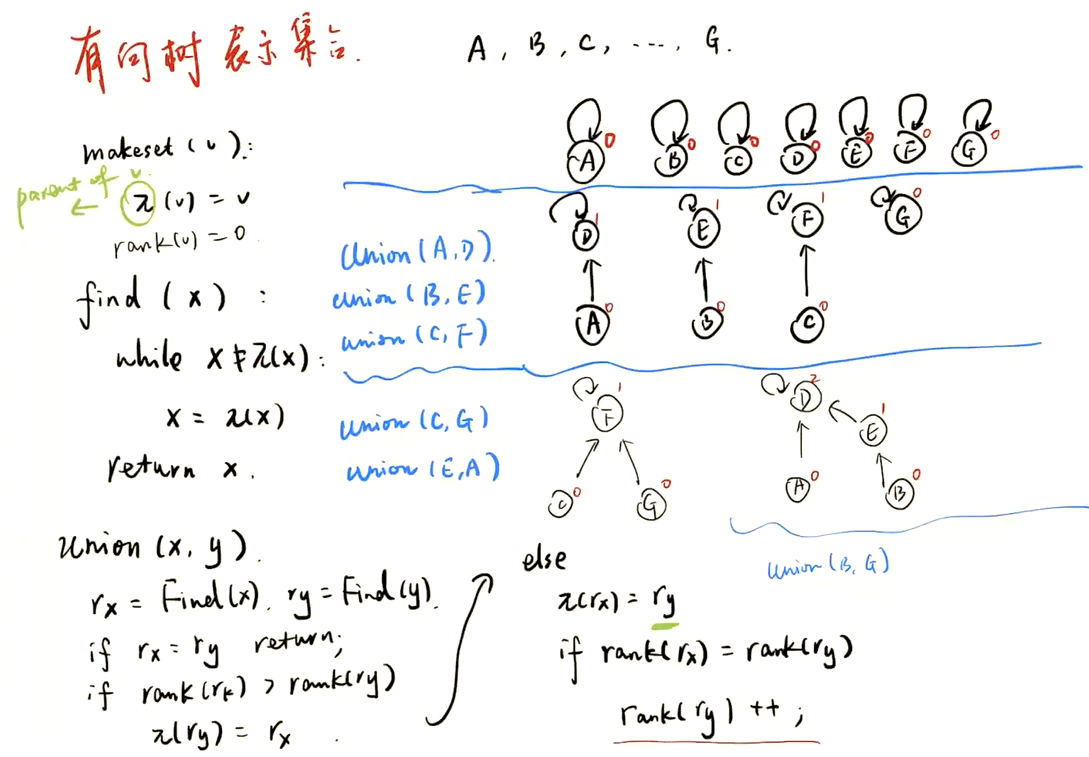 有向树表示集合.
A, B, C, ..., G.
makeset(v):
parent of v.
π(v) = v
rank(v) = 0
find (x) :
while x ≠ π(x):
x = π(x)
return x.
Union (x, y).
rx = Find(x), ry = Find(y).
if rx = ry return;
if rank(rx) > rank(ry)
π(ry) = rx.
else
π(rx) = ry
if rank(rx) = rank(ry)
rank(ry) ++ ;
A 0 B 0 C 0 D 0 E 0 F 0 G 0
Union(A, D).
union(B, E)
union(C, F)
D 1 E 1 F 1 G 0
A 0 B 0 C 0
union(C, G)
union(E, A)
F 1 D 2
E 1
C 0 G 0 A 0 B 0
union(B, G)